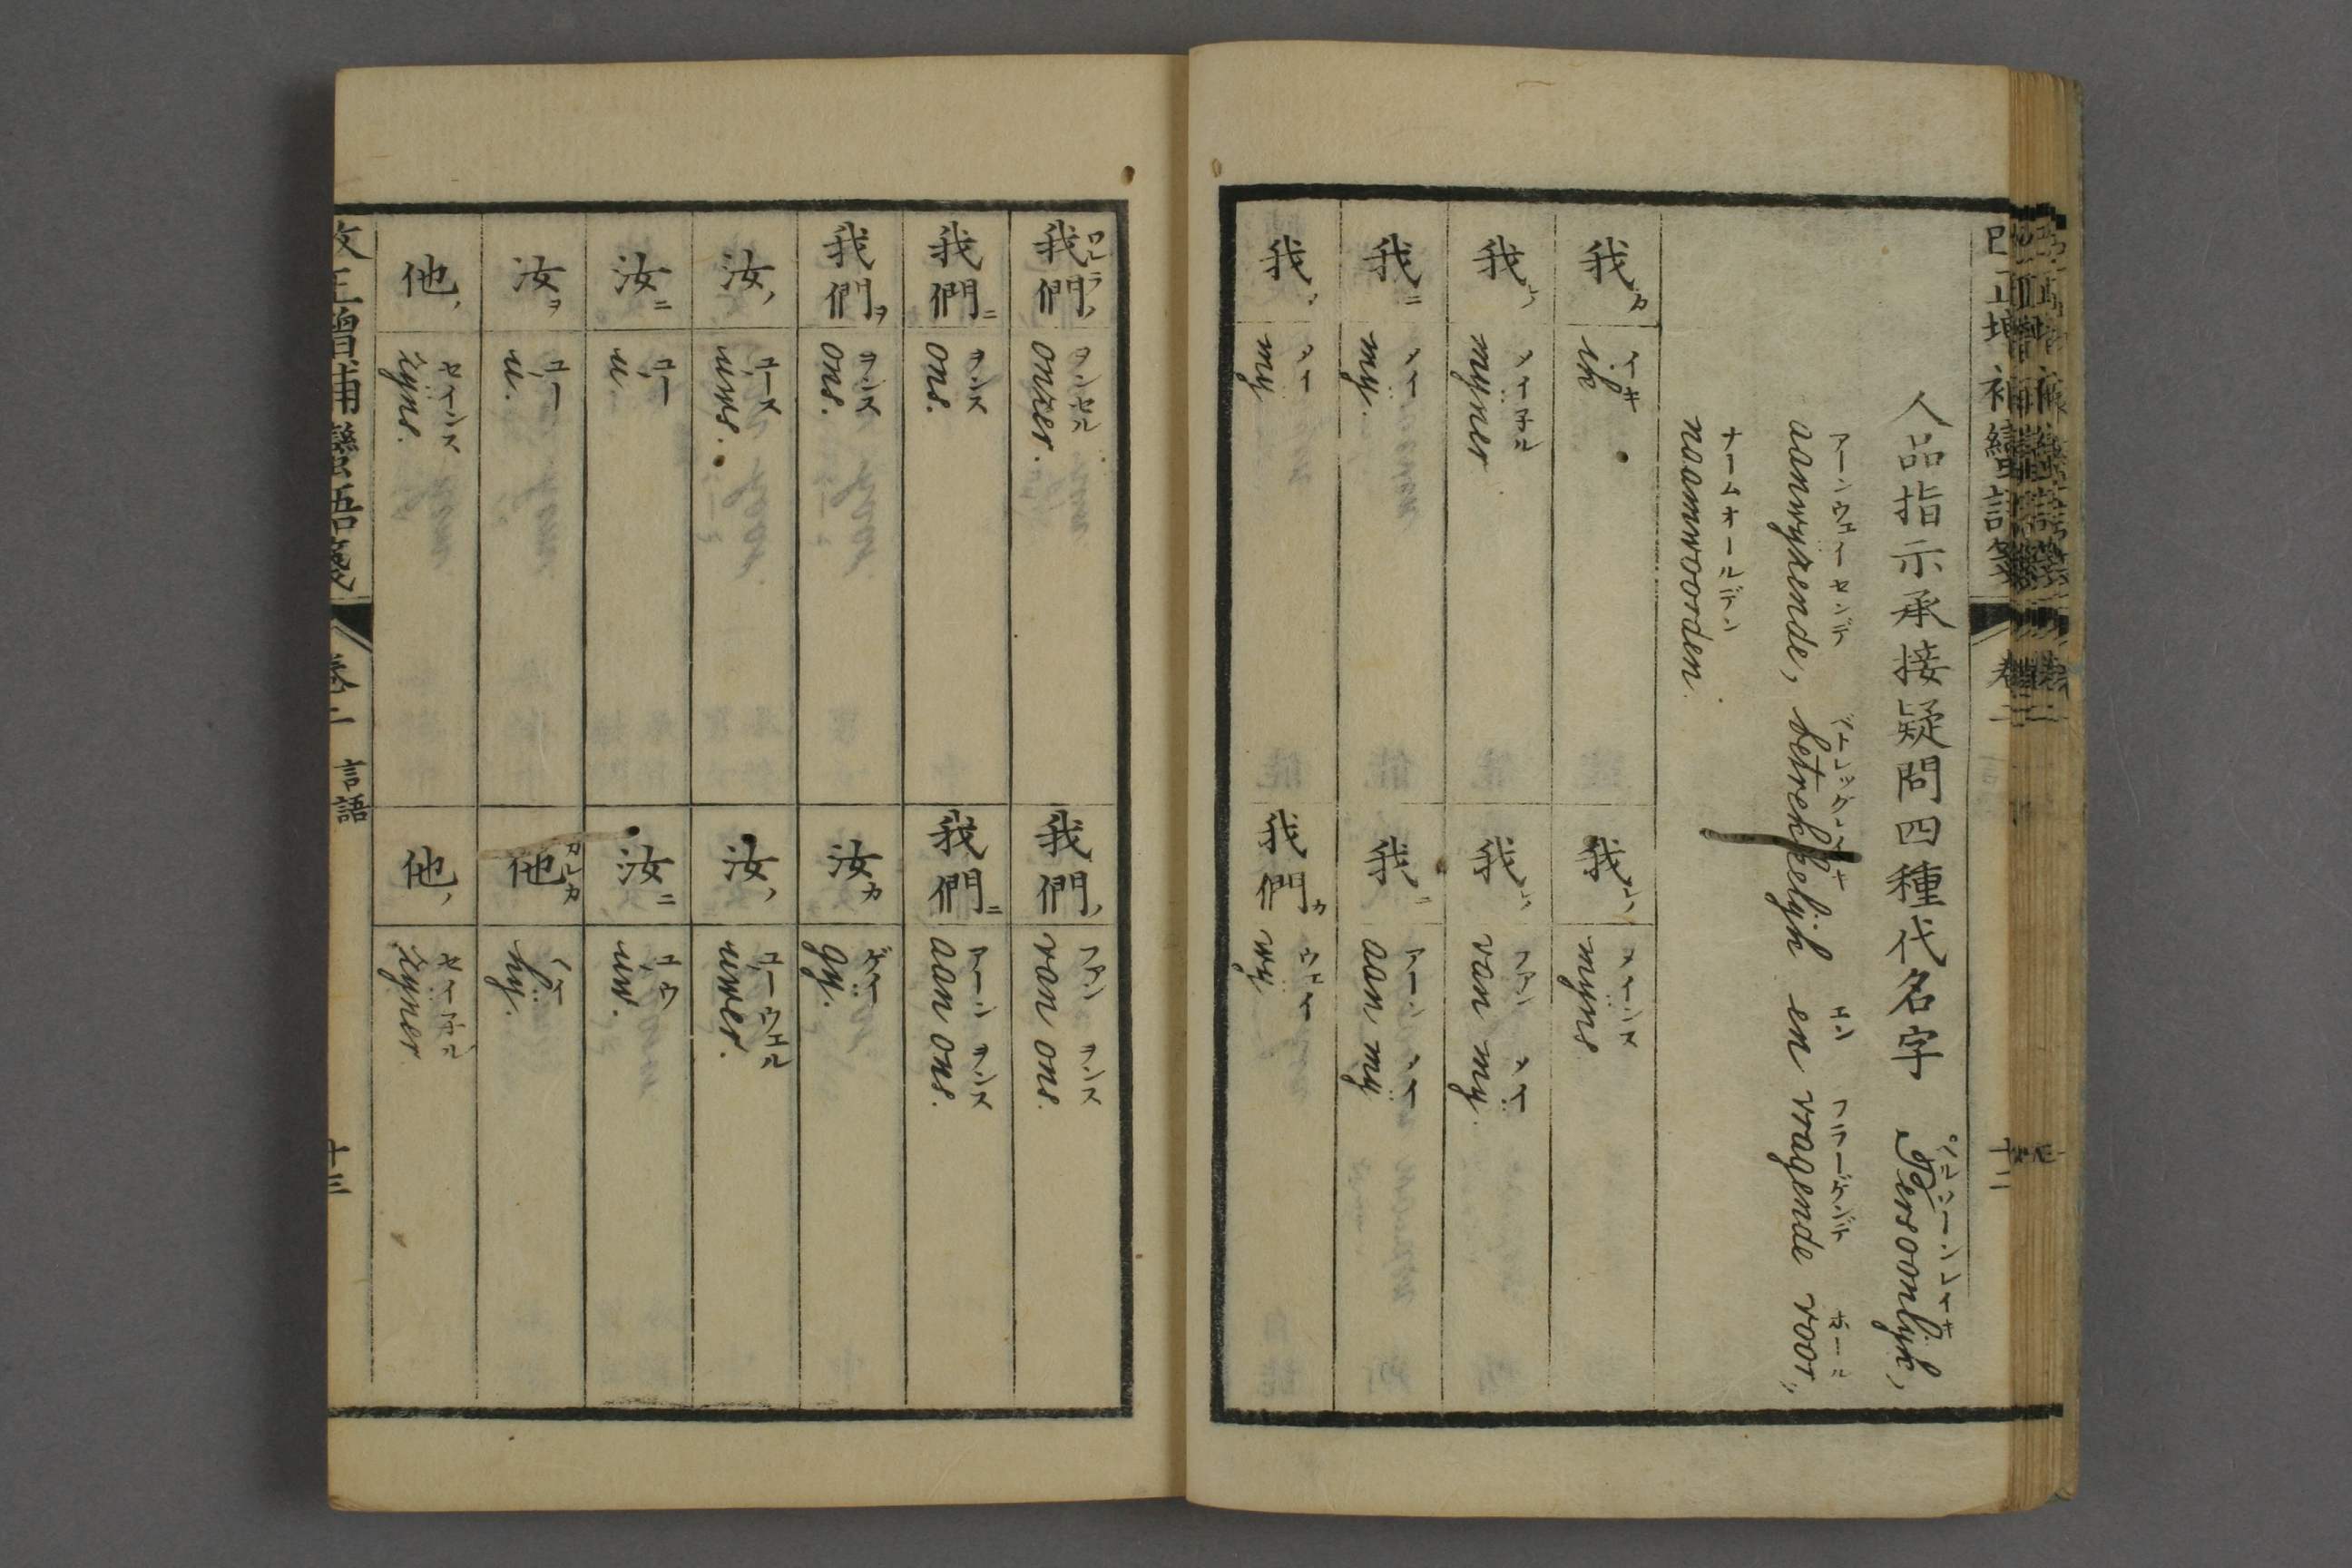 人品指示承接疑問四種代名字 Persoonlijk,
ペルソーンレイキ
aanwyzende, betrekkelijk en vragende voor,,
アーンウェイセンデ エン フラーゲンデ ホール
naamwoorden.
ナームオールデン
我カ ik イキ
我ノ myns メインス
我ノ myner メイ子ル
我ノ van my ファン メイ
我ニ my. メイ
我ニ aan my アーン メイ
我ヲ my メイ
我們カ wy ウェイ
改正増補蠻語箋 卷二 言語 十三
我們ワレラノ onzer. ヲンセル
我們ノ van ons. ファン ヲンス
我們ニ ons. ヲンス
我們ニ aan ons. アーン ヲンス
我們ヲ ons. ヲンス
汝カ gy. ゲイ
汝ノ uws. ユース
汝ノ uwer. ユーウェル
汝ニ u. ユー
汝ニ uw. ユウ
汝ヲ u. ユー
他カレカ hy. ヘイ
他ノ zyns. セインス
他ノ zyner セイ子ル